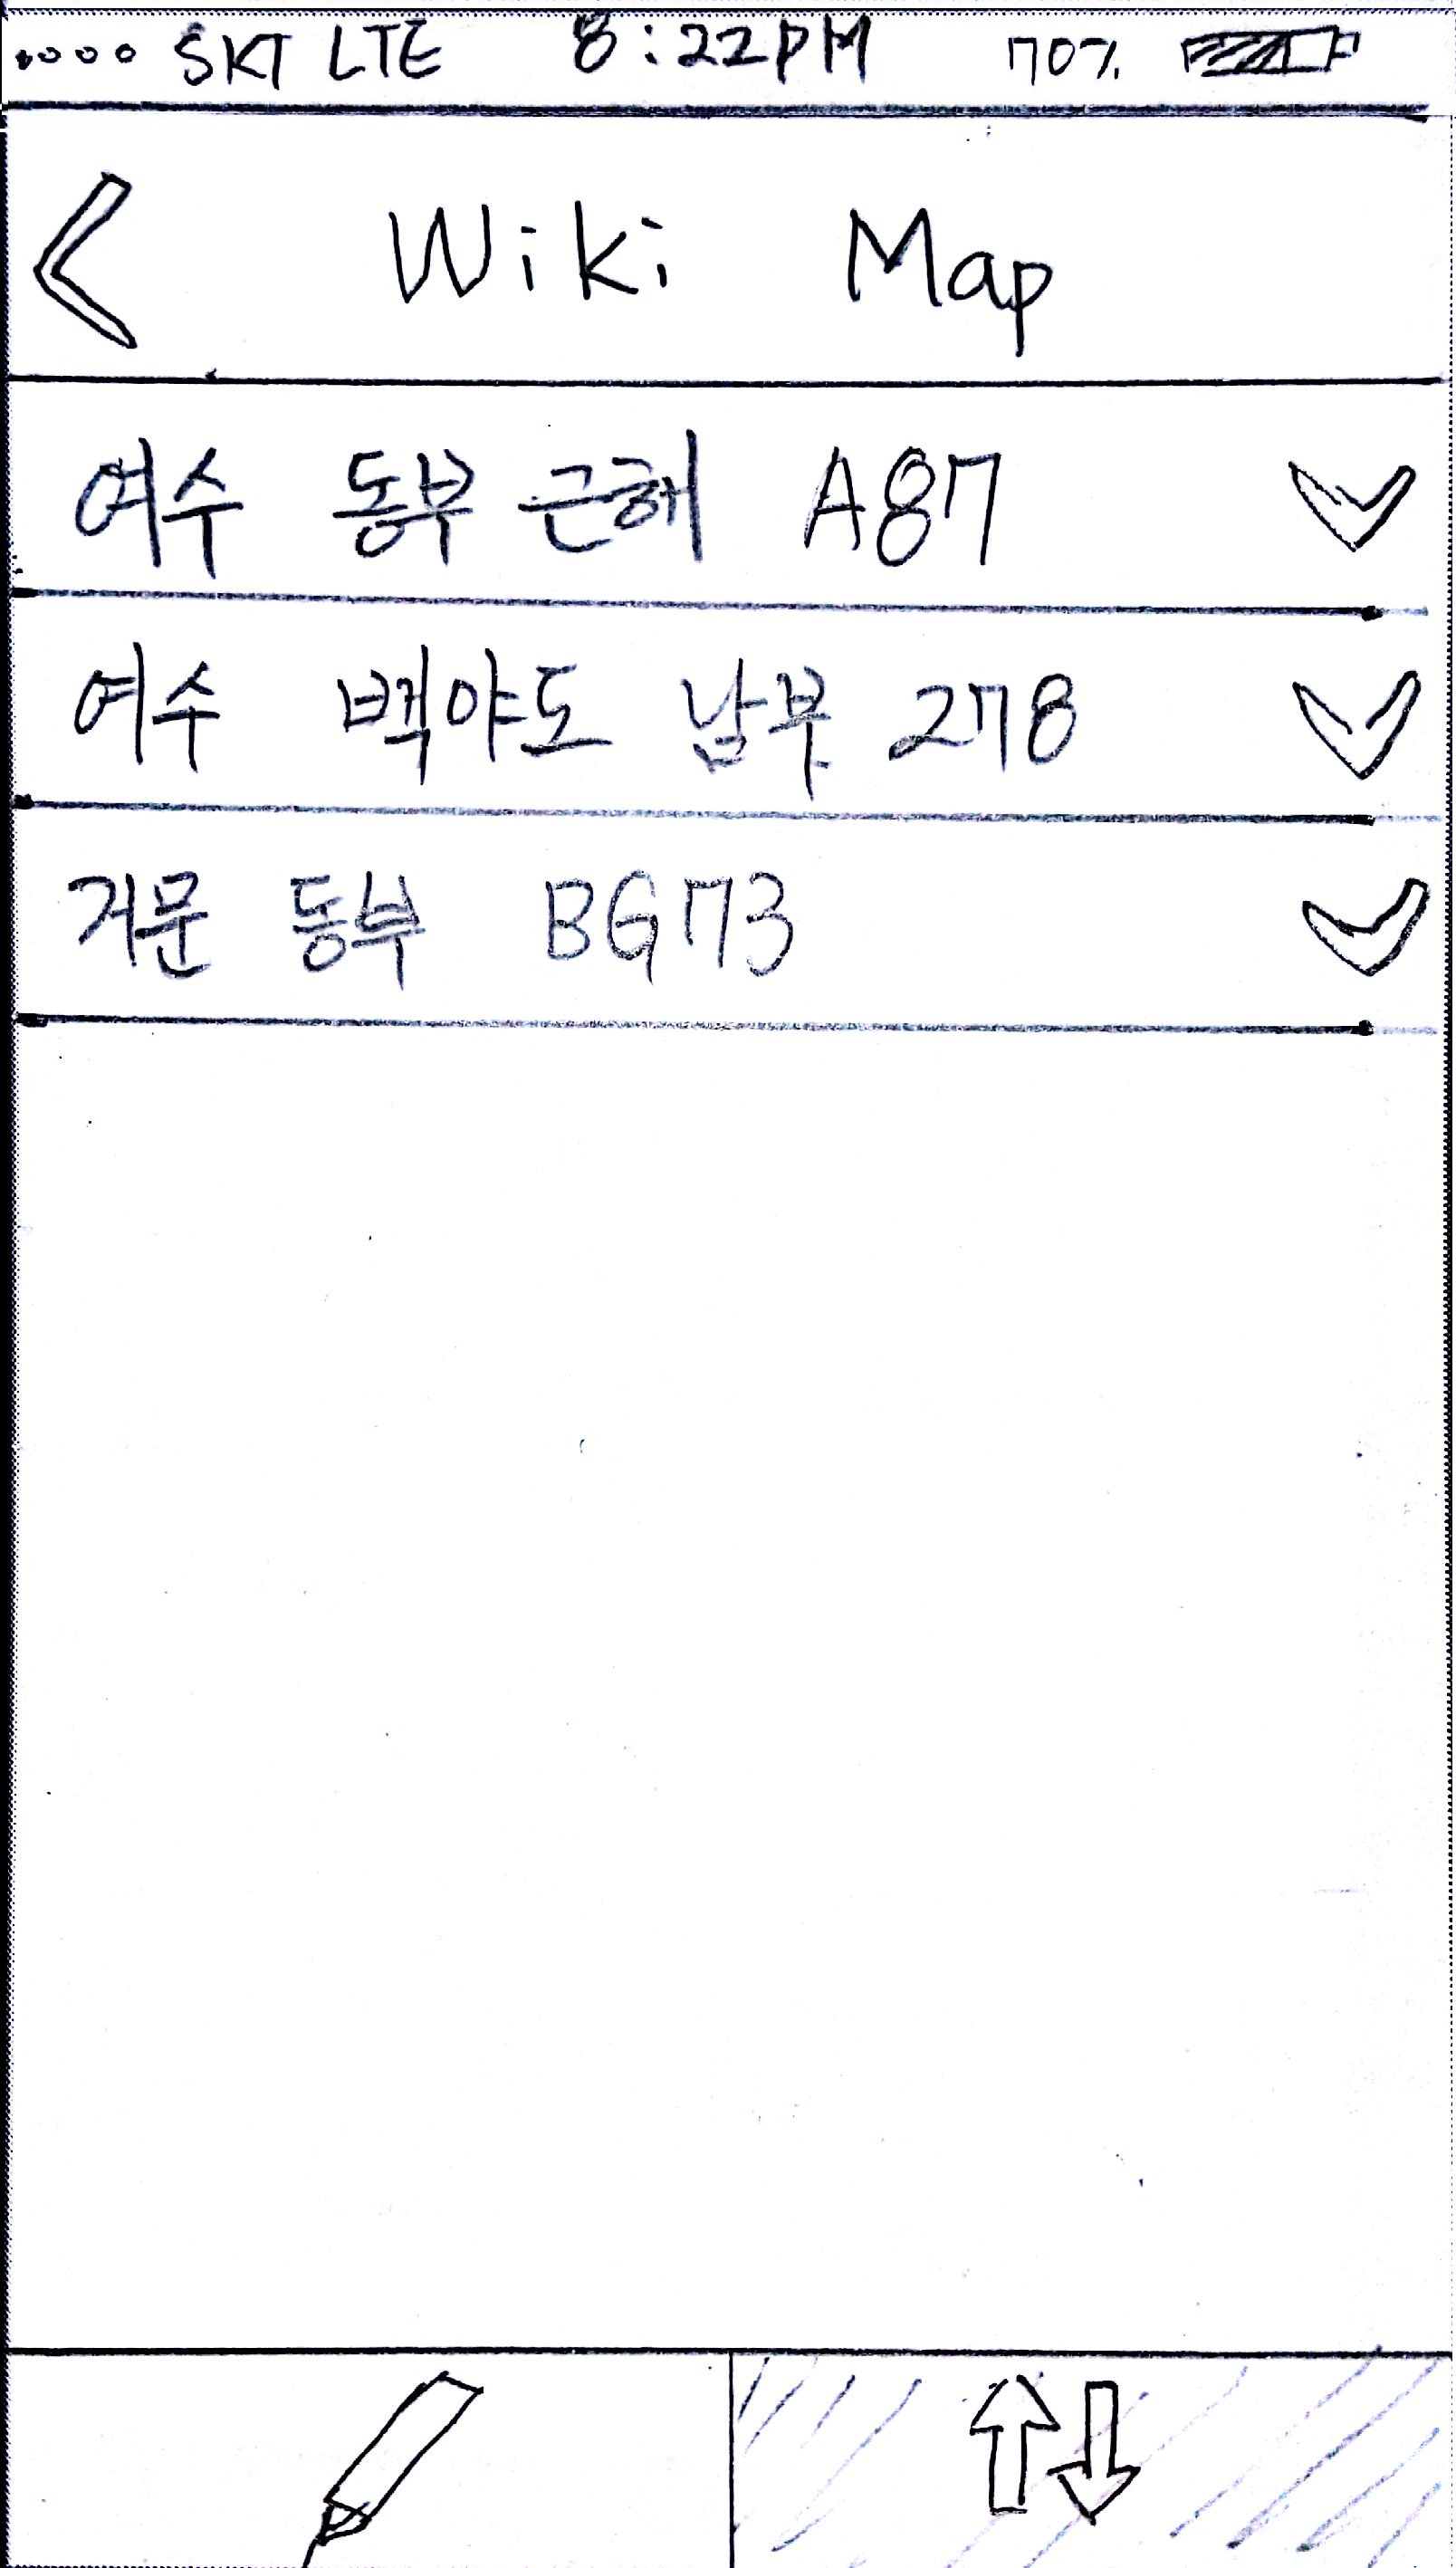 SKT LTE 8:22PM 70%
Wiki Map
여수 동부 근해 A87
여수 백야도 남부 278
거문 동부 BG73